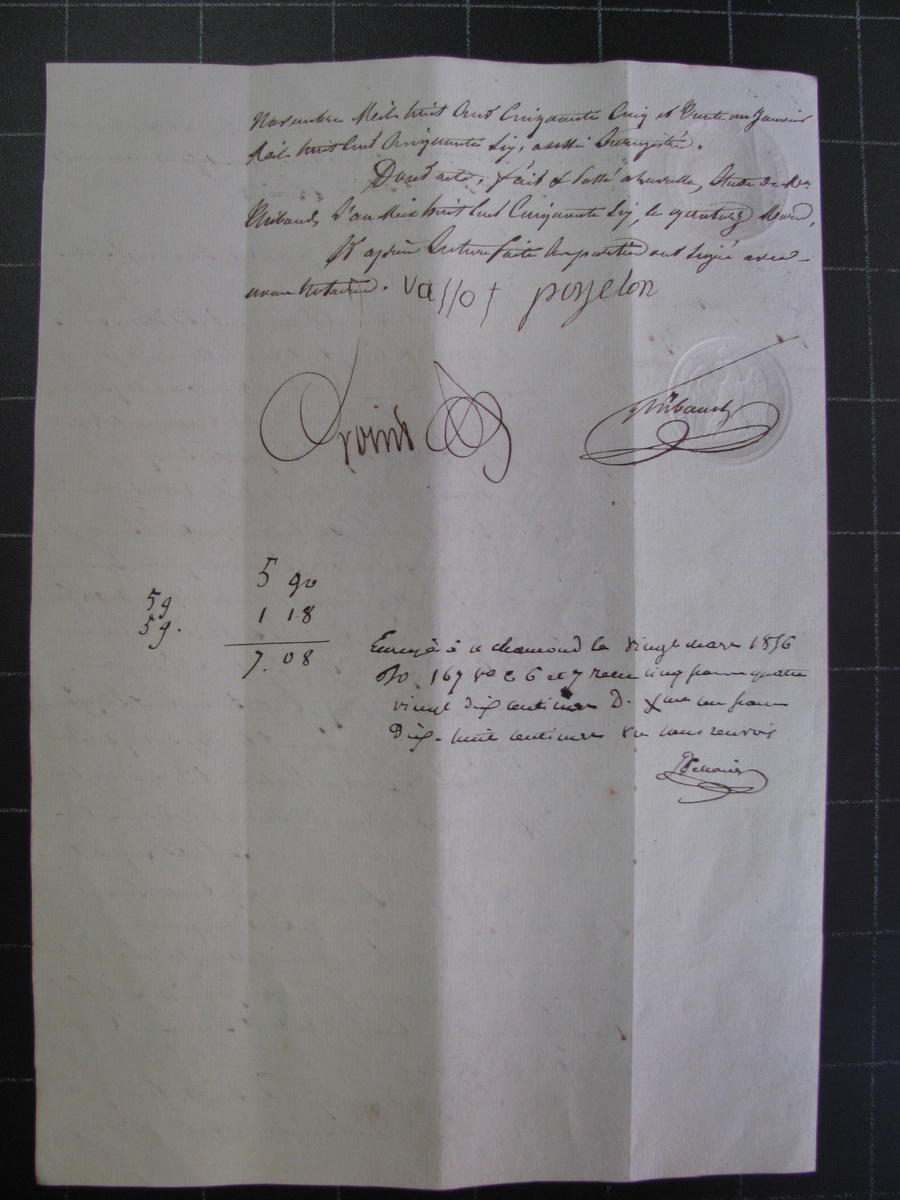 Novembre Mil huit Cent Cinquante Cinq et trente un Janvier
Mil huit Cent Cinquante Six, aussi Enregistré.
Dont acte, fait & passé à, Etude de Me
Thibaud, L'an Mil huit Cent Cinquante Six, le quatorze Mars,
Et après Lecture faite les parties ont signé avec
nous Notaires. vassot ponselon
Thibaud
5 90
1 18
7. 08
59
59.
Enregistré à St chamond le vingt mars 1856
fo 167 vo C 6 et 7 reçu cinq francs quatre
vingt dix centimes D. Xme un franc
Dix-huit centimes sans renvois